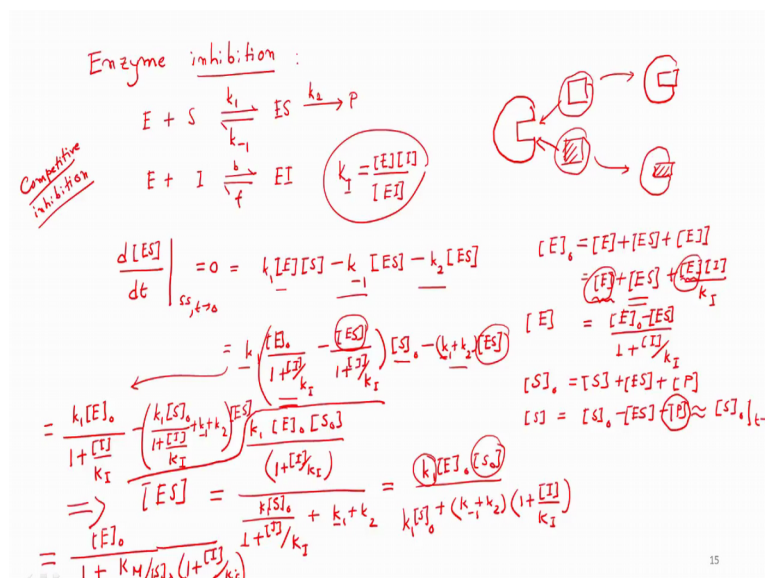 Enzyme inhibition :
E + S ⇌ ES → P
k₁
k₋₁
k₂
Competitive
inhibition
E + I ⇌ EI
b
f
k_I = [E][I]/[EI]
d[ES]/dt |ss, t→0 = 0 = k₁[E][S] - k₋₁[ES] - k₂[ES]
= k₁([E]₀/(1+[I]/k_I) - [ES]/(1+[I]/k_I))[S]₀ - (k₋₁+k₂)[ES]
= k₁[E]₀/(1+[I]/k_I) - (k₁[S]₀/(1+[I]/k_I) + k₋₁+k₂)[ES]
⇒ [ES] = (k₁[E]₀[S₀]/(1+[I]/k_I))/(k₁[S]₀/(1+[I]/k_I) + k₋₁+k₂) = k₁[E]₀[S₀]/(k₁[S]₀+(k₋₁+k₂)(1+[I]/k_I))
= [E]₀/(1+ K_M/[S]₀(1+[I]/k_I))
[E]₀ = [E]+[ES]+[EI]
= [E]+[ES]+[E][I]/k_I
[E] = ([E]₀-[ES])/(1+[I]/k_I)
[S]₀ = [S]+[ES]+[P]
[S] = [S]₀-[ES]-[P] ≈ [S]₀|t→
15